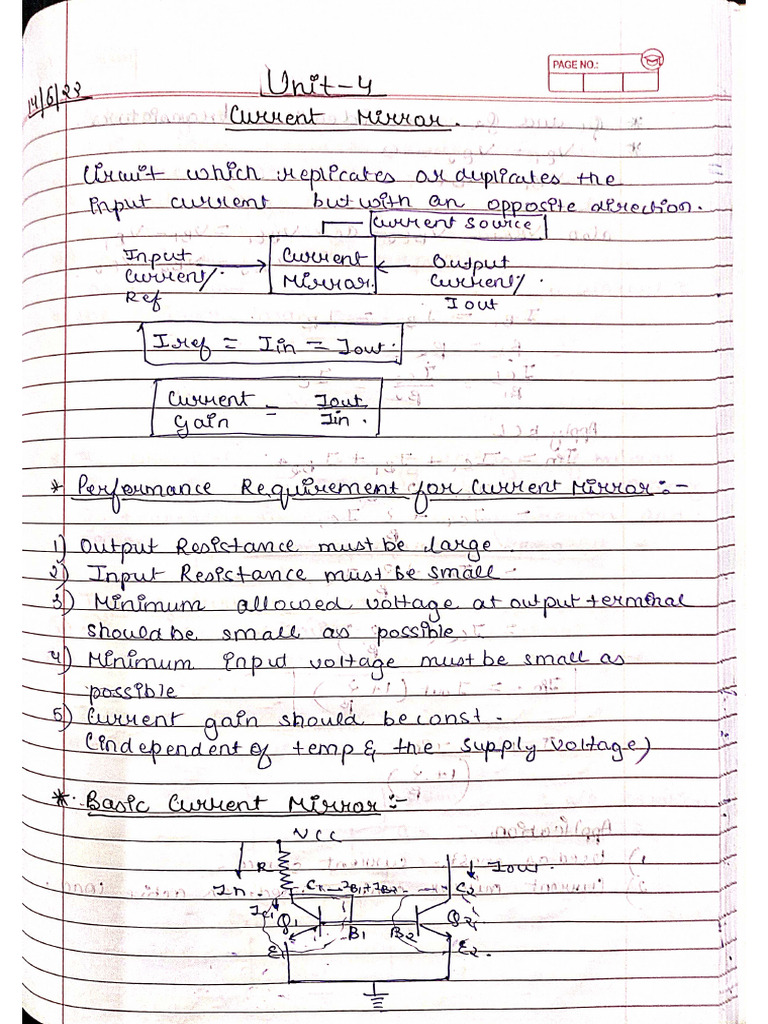 PAGE NO.:
14/6/23
Unit-4
Current Mirror.
Circuit which replicates or duplicates the
input current but with an opposite direction.
Current Source
Input
Current/
Ref
Current
Mirror
Output
Current/
I out
Iref = Iin = Iout.
Current
Gain = Iout/Iin.
* Performance Requirement for Current Mirror:-
1) Output Resistance must be large.
2) Input Resistance must be small.
3) Minimum allowed voltage at output terminal
should be small as possible
4) Minimum input voltage must be small as
possible
5) Current gain should be const.
(independent of temp & the supply voltage)
* Basic Current Mirror:-
VCC
R
Iin
Iout
IB1+IB2
C2
IC1
Q1
B1
B2
Q2
E1
E2